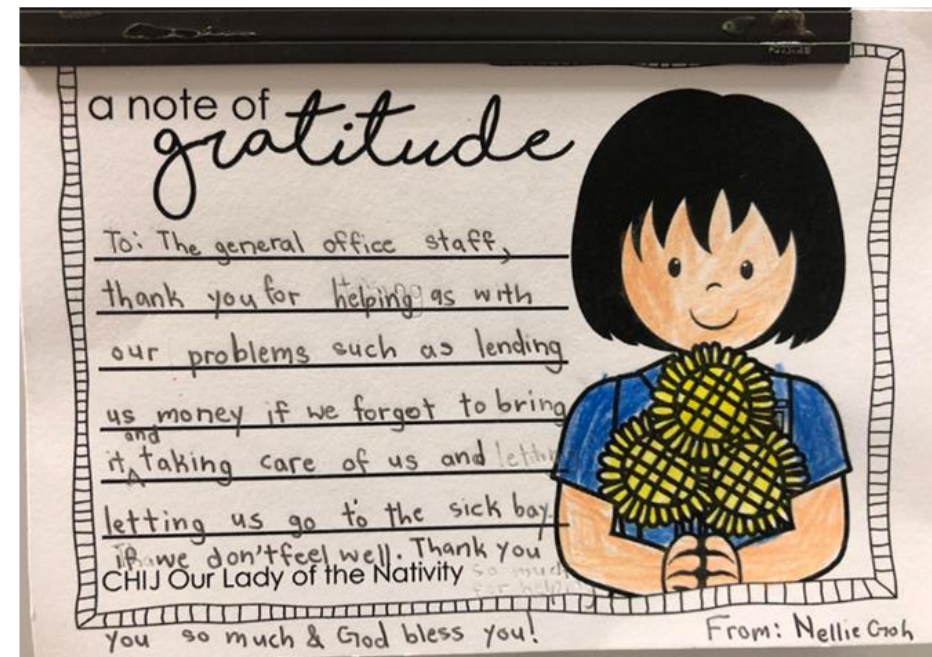 a note of
gratitude
To: The general office staff,
thank you for helping as with
our problems such as lending
us money if we forgot to bring
and
it, taking care of us and
letting us go to the sick bay
if we don't feel well. Thank you
CHIJ Our Lady of the Nativity
you so much & God bless you!
From: Nellie Goh